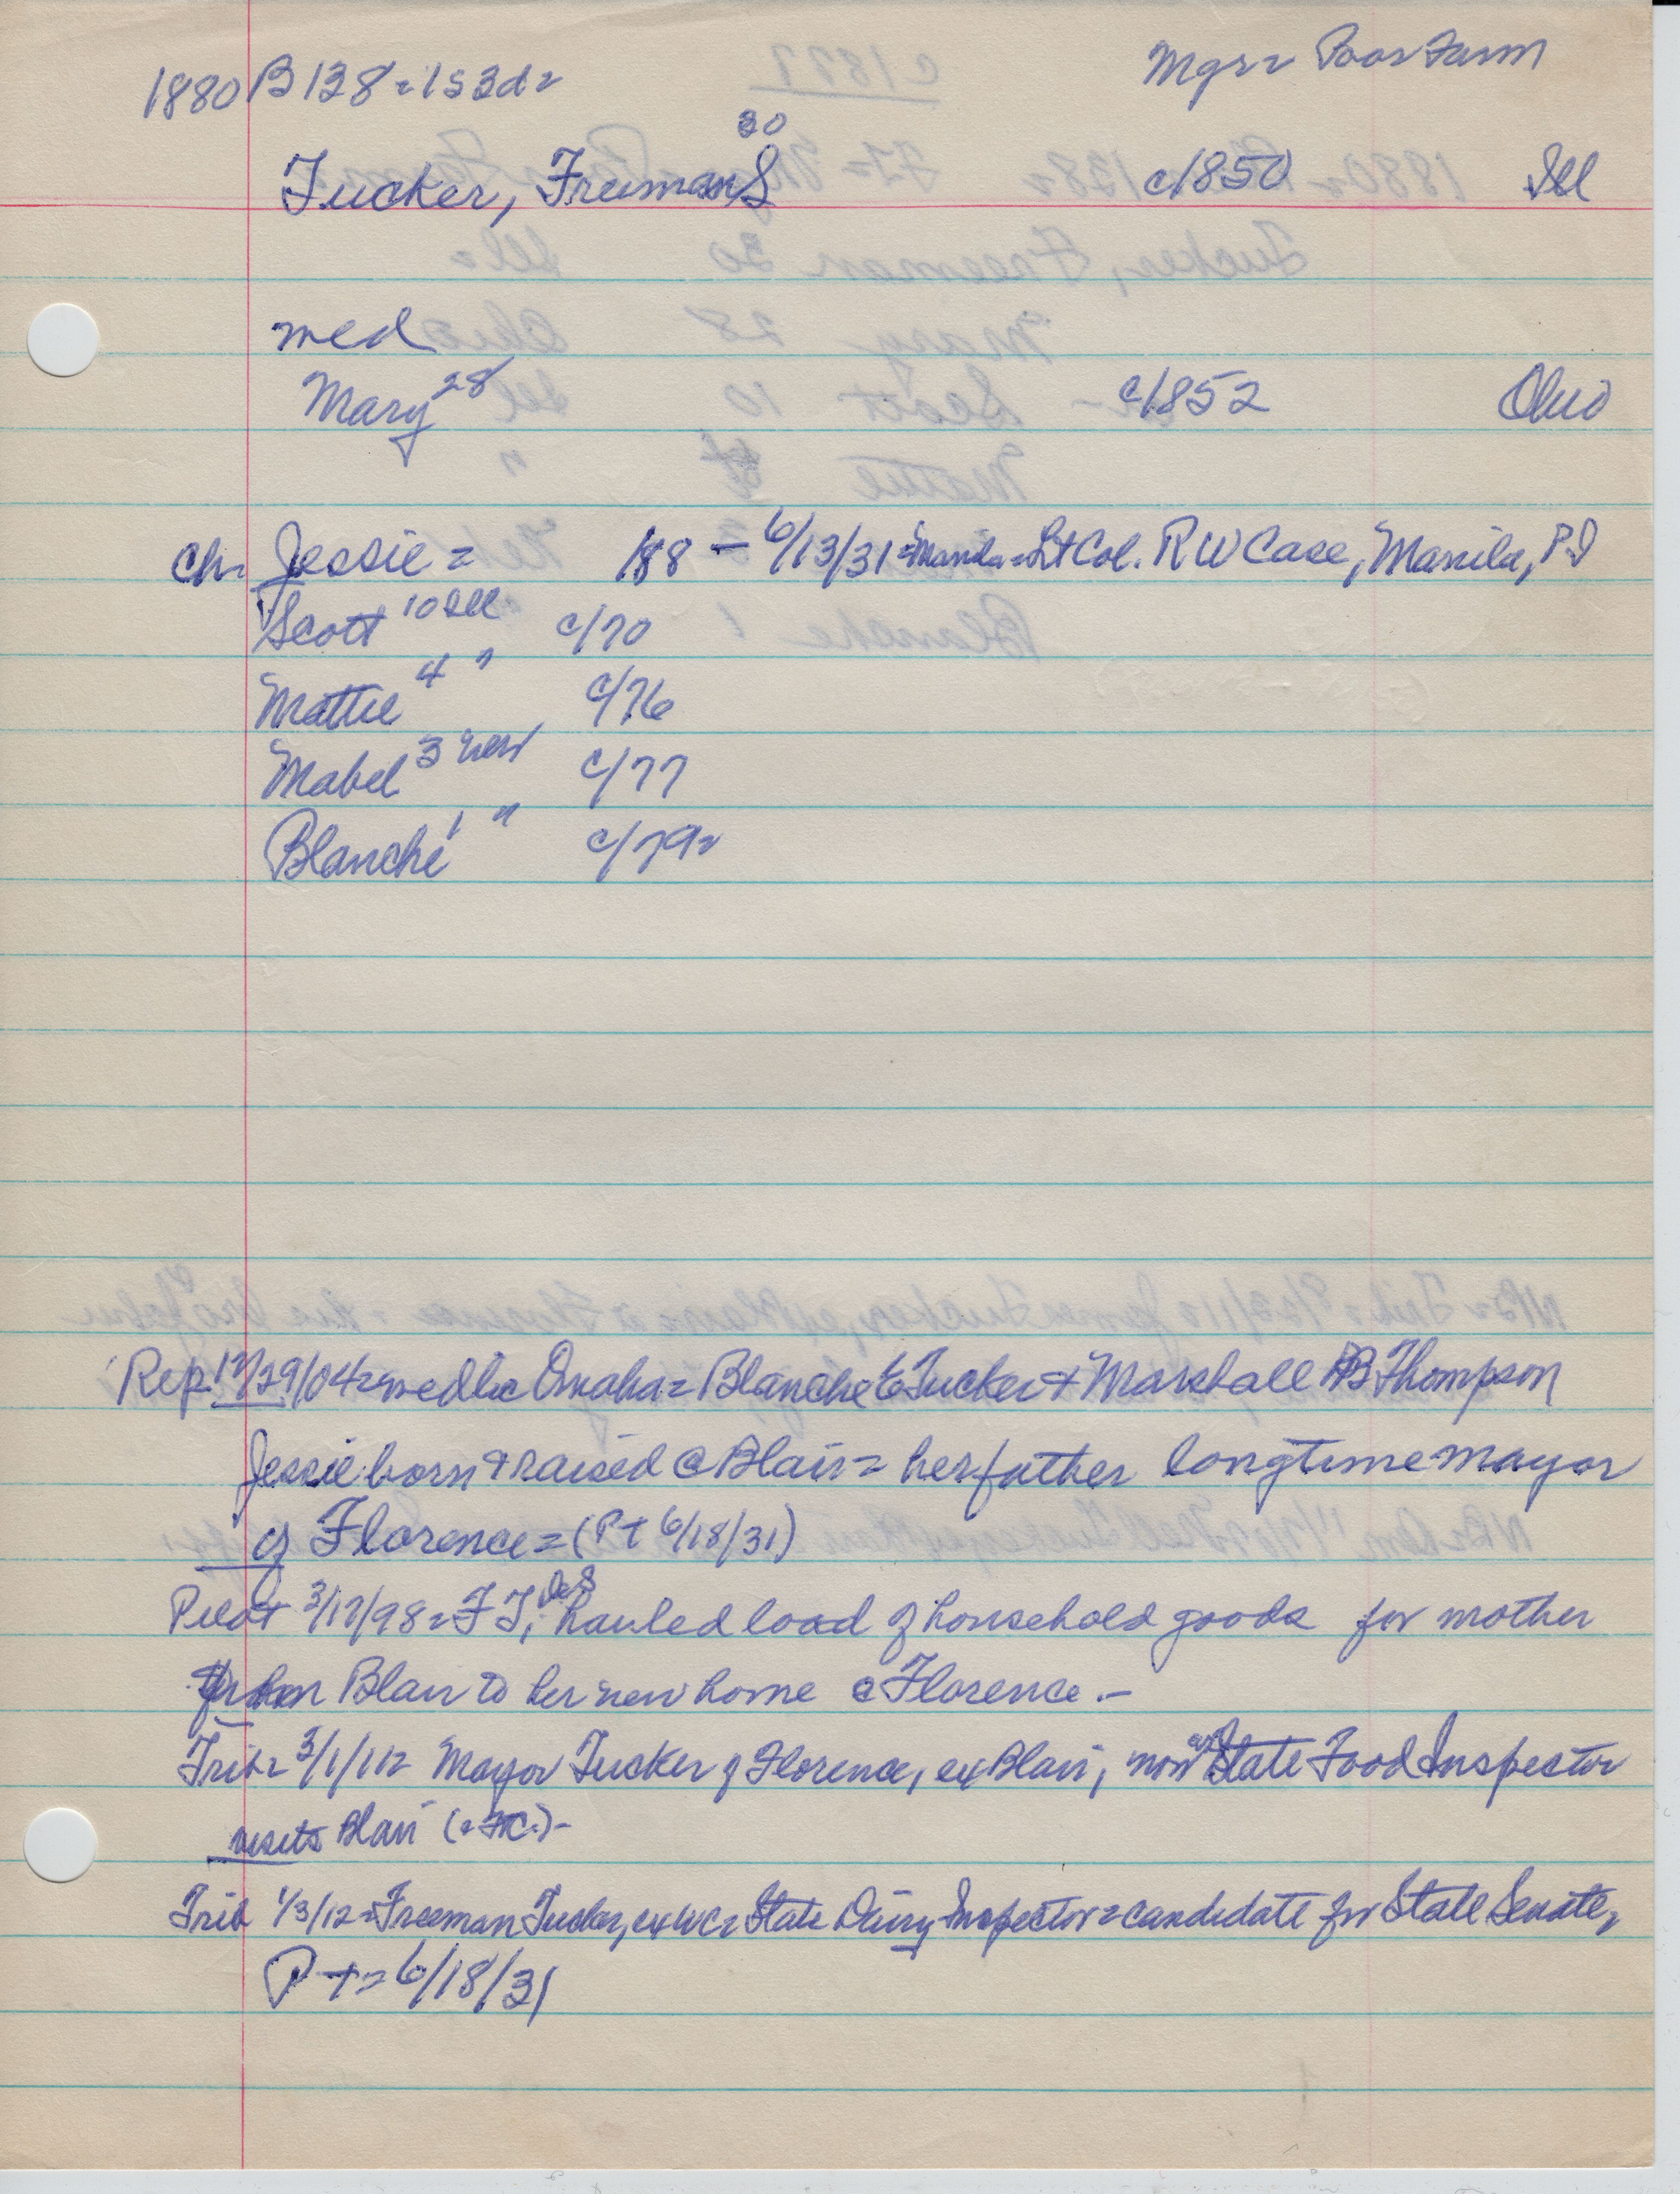 1880 B 138 = 1s3d = Mgr = Poor Farm
30
Tucker, Freeman S c1850 Ill
med
Mary 28 c1852 Ohio
Ch = Jessie = 188 – 6/13/31 = Manila = Lt Col. R W Case, Manila, P I
Scott 10 Ill c/70
Mattie 4 " c/76
Mabel 3 Neb c/77
Blanche 1 " c/79 =
Rep 12/29/04 = wed lic Omaha = Blanche E Tucker + Marshall B Thompson
Jessie born + raised @ Blair = her father longtime mayor
of Florence = (P t 6/18/31)
Pilot 3/17/98 = F T, hauled load of household goods for mother
from Blair to her new home @ Florence. –
Trib = 3/1/11 = Mayor Tucker of Florence, ex Blair, now State Food Inspector
visits Blair
Trib 1/3/12 = Freeman Tucker, ex WC = State Dairy Inspector = candidate for State Senate,
P t = 6/18/31